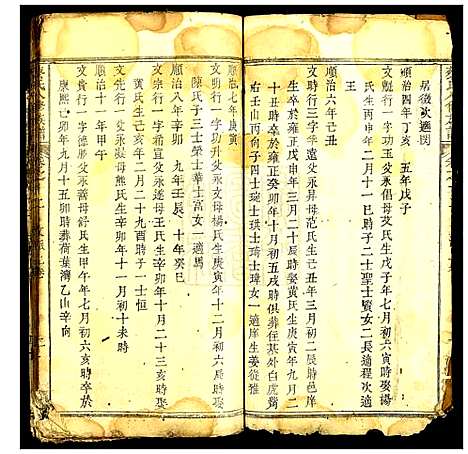 另發次適閔
順治四年丁亥 五年戊子
文 行一字功玉父永倡母范
氏生丙申年二月十一巳時子二士賢女二長適程次適
王
順治六年己丑
文時行三字 父永昇母范氏生己丑年三月初二辰時邑庠
生 於雍正戊申年二月初三辰時娶黃氏生庚寅年九月二
十丑時卒於雍正癸卯年十月初五戌時俱葬住基外白虎
嘴 山丙向子四士 士珙士琦士璋女一適庠生姜 雅
順治七年庚寅
文明行一字功升父永文母楊氏生庚寅年十一月初六亥時娶
陳氏子三士榮士華士富女一適馬
順治八年辛卯 九年壬辰 十年癸巳
文宗行一字希宣父永 母王氏生辛卯年十月二十三亥時娶
黃氏生己亥年二月二十九酉時子一士恒
文先行一字 父永 母段氏生辛卯年十一月初十未時
順治十一年甲午
文貴行一字德 父永善母舒氏生甲午年七月初六亥時卒於
康熙己卯年月十五辛卯時葬荷葉灣乙山辛向